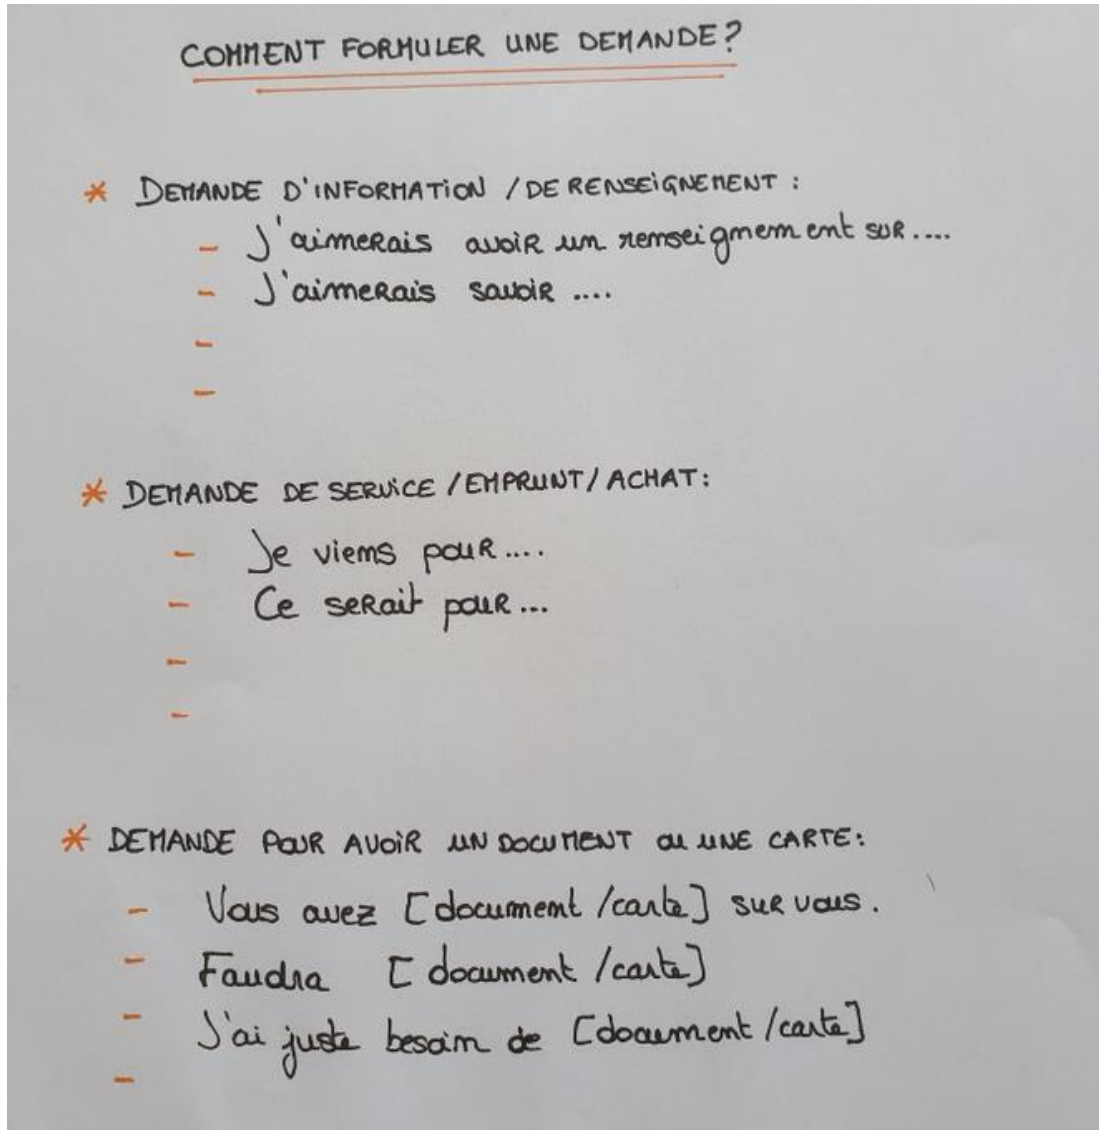 COMMENT FORMULER UNE DEMANDE?
* DEMANDE D'INFORMATION / DE RENSEIGNEMENT :
- J'aimerais avoir un renseignement sur....
- J'aimerais savoir ....
-
-
* DEMANDE DE SERVICE / EMPRUNT / ACHAT:
- Je viens pour....
- Ce serait pour...
-
-
* DEMANDE POUR AVOIR UN DOCUMENT ou UNE CARTE:
- Vous avez [document / carte] sur vous.
- Faudra [document / carte]
- J'ai juste besoin de [document / carte]
-